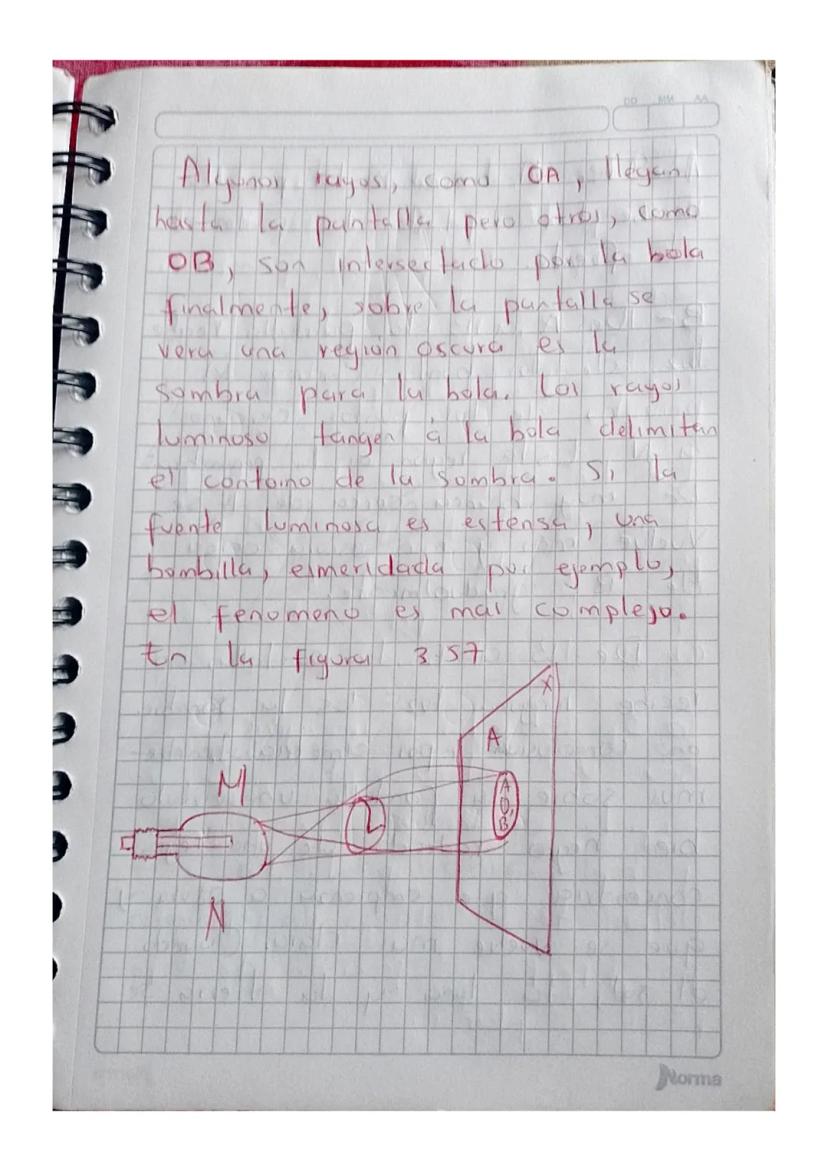 DD MM AA
Algunos rayos, como OA, llegan
hasta la pantalla pero otros, como
OB, son intersectado por la bola
finalmente, sobre la pantalla se
vera una region oscura es la
sombra para la bola. Los rayos
luminoso tangen a la bola delimitan
el contorno de la sombra. Si la
fuente luminosa es estensa, una
bombilla, esmeridada por ejemplo,
el fenomeno es mas complejo.
En la figura 3.57
X
A
M
A
O
B'
N
Norma